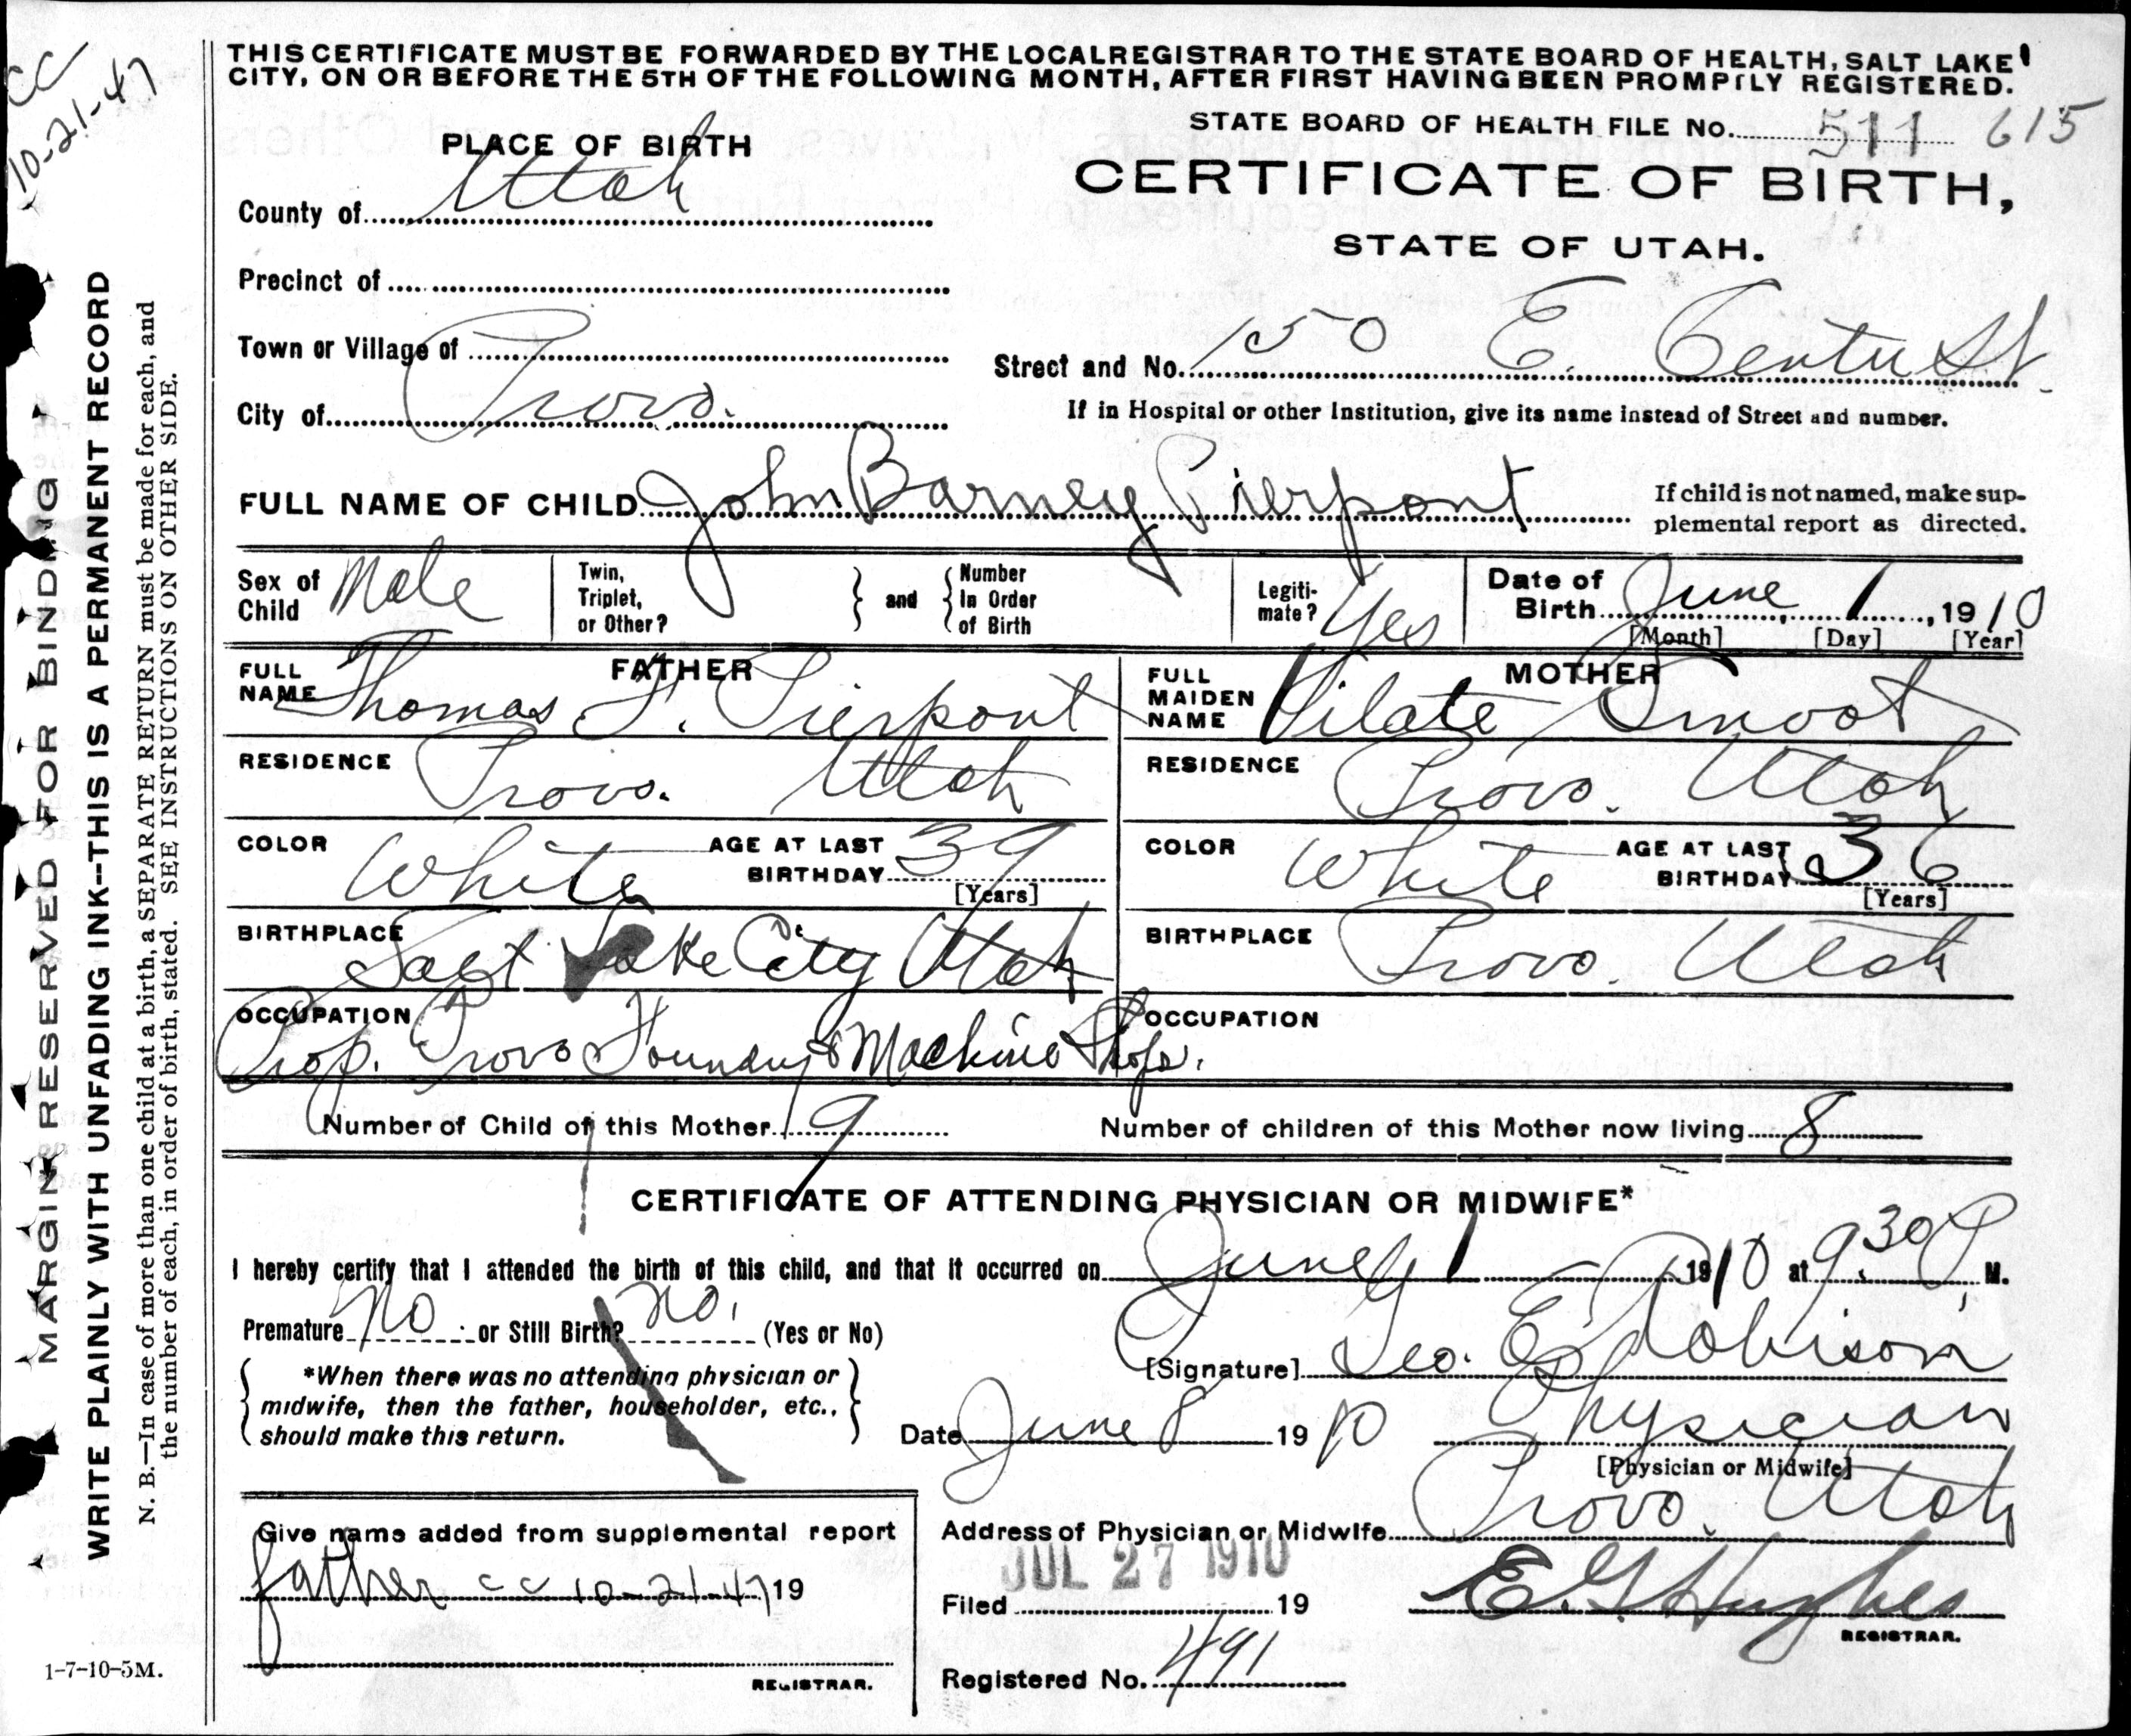 CC
10-21-47
THIS CERTIFICATE MUST BE FORWARDED BY THE LOCAL REGISTRAR TO THE STATE BOARD OF HEALTH, SALT LAKE
CITY, ON OR BEFORE THE 5TH OF THE FOLLOWING MONTH, AFTER FIRST HAVING BEEN PROMPTLY REGISTERED.
STATE BOARD OF HEALTH FILE No. 511 615
PLACE OF BIRTH
CERTIFICATE OF BIRTH,
STATE OF UTAH.
County of Utah
Precinct of
Town or Village of
City of Provo.
Street and No. 150 E. Center St.
If in Hospital or other Institution, give its name instead of Street and number.
FULL NAME OF CHILD John Barney Pierpont
If child is not named, make sup-
plemental report as directed.
Sex of Child Male
Twin, Triplet, or Other? and Number In Order of Birth
Legiti-mate? Yes
Date of Birth June 1, 1910
[Month] [Day] [Year]
FATHER
FULL NAME Thomas F. Pierpont
RESIDENCE Provo. Utah
COLOR White AGE AT LAST BIRTHDAY 39
[Years]
BIRTHPLACE Salt Lake City Utah
OCCUPATION
Prop. Provo Foundry & Machine Shops.
MOTHER
FULL MAIDEN NAME Vilate Smoot
RESIDENCE Provo. Utah
COLOR White AGE AT LAST BIRTHDAY 36
[Years]
BIRTHPLACE Provo. Utah
OCCUPATION
Number of Child of this Mother 9
Number of children of this Mother now living 8
CERTIFICATE OF ATTENDING PHYSICIAN OR MIDWIFE*
I hereby certify that I attended the birth of this child, and that it occurred on June 1 1910 at 9:30 P M.
Premature No or Still Birth? No. (Yes or No)
*When there was no attending physician or
midwife, then the father, householder, etc.,
should make this return.
[Signature] Geo. E. Robison
Date June 8 1910 Physician
[Physician or Midwife]
Address of Physician or Midwife Provo. Utah
Give name added from supplemental report
father cc 10-21-47 19
REGISTRAR.
JUL 27 1910
Filed 19
E. G. Hughes
REGISTRAR.
Registered No. 491
1-7-10-5M.
MARGIN RESERVED FOR BINDING
WRITE PLAINLY WITH UNFADING INK--THIS IS A PERMANENT RECORD
N. B.—In case of more than one child at a birth, a SEPARATE RETURN must be made for each, and
the number of each, in order of birth, stated. SEE INSTRUCTIONS ON OTHER SIDE.